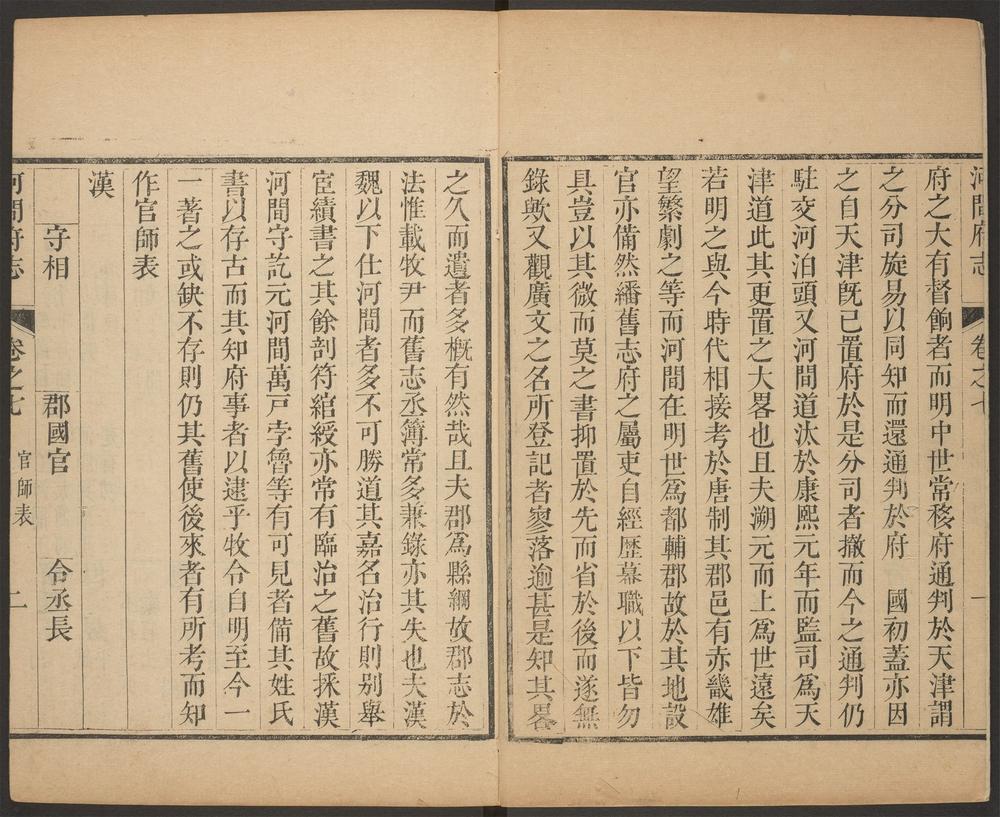 河間府志 卷之七 一
府之大有督餉者而明中世常移府通判於天津謂
之分司旋易以同知而還通判於府 國初蓋亦因
之自天津既已置府於是分司者撤而今之通判仍
駐交河泊頭又河間道汰於康熙元年而監司爲天
津道此其更置之大畧也且夫溯元而上爲世遠矣
若明之與今時代相接考於唐制其郡邑有赤畿雄
望繁劇之等而河間在明世爲都輔郡故於其地設
官亦備然繙舊志府之屬吏自經歷幕職以下皆勿
具豈以其微而莫之書抑置於先而省於後而遂無
錄歟又觀廣文之名所登記者寥落逾甚是知其畧
之久而遺者多概有然哉且夫郡爲縣綱故郡志於
法惟載牧尹而舊志丞簿常多兼錄亦其失也夫漢
魏以下仕河間者多不可勝道其嘉名治行則别舉
宦績書之其餘剖符綰綬亦常有臨治之舊故採漢
河間守訖元河間萬戸孛魯等有可見者備其姓氏
書以存古而其知府事者以逮乎牧令自明至今一
一著之或缺不存則仍其舊使後來者有所考而知
作官師表
漢
守相 郡國官 令丞長
河間府志 卷之七 官師表 二